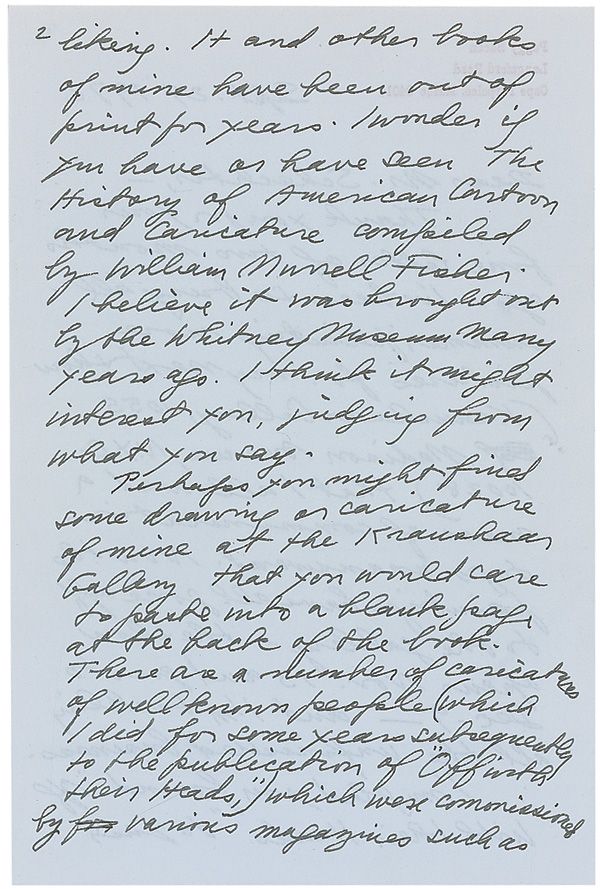 2 liking. It and other books
of mine have been out of
print for years. I wonder if
you have or have seen The
History of American Cartoon
and Caricature compiled
by William Murrell Fisher.
I believe it was brought out
by the Whitney Museum many
years ago. I think it might
interest you, judging from
what you say.
Perhaps you might find
some drawing or caricature
of mine at the Kraushaar
Gallery that you would care
to paste into a blank page
at the back of the book.
There are a number of caricatures
of well known people (which
I did for some years subsequently
to the publication of "Off with
their Heads,") which were commissioned
by for various magazines such as